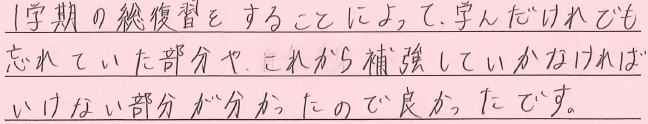 1学期の総復習をすることによって、学んだけれども
忘れていた部分や、これから補強していかなければ
いけない部分が分かったので良かったです。